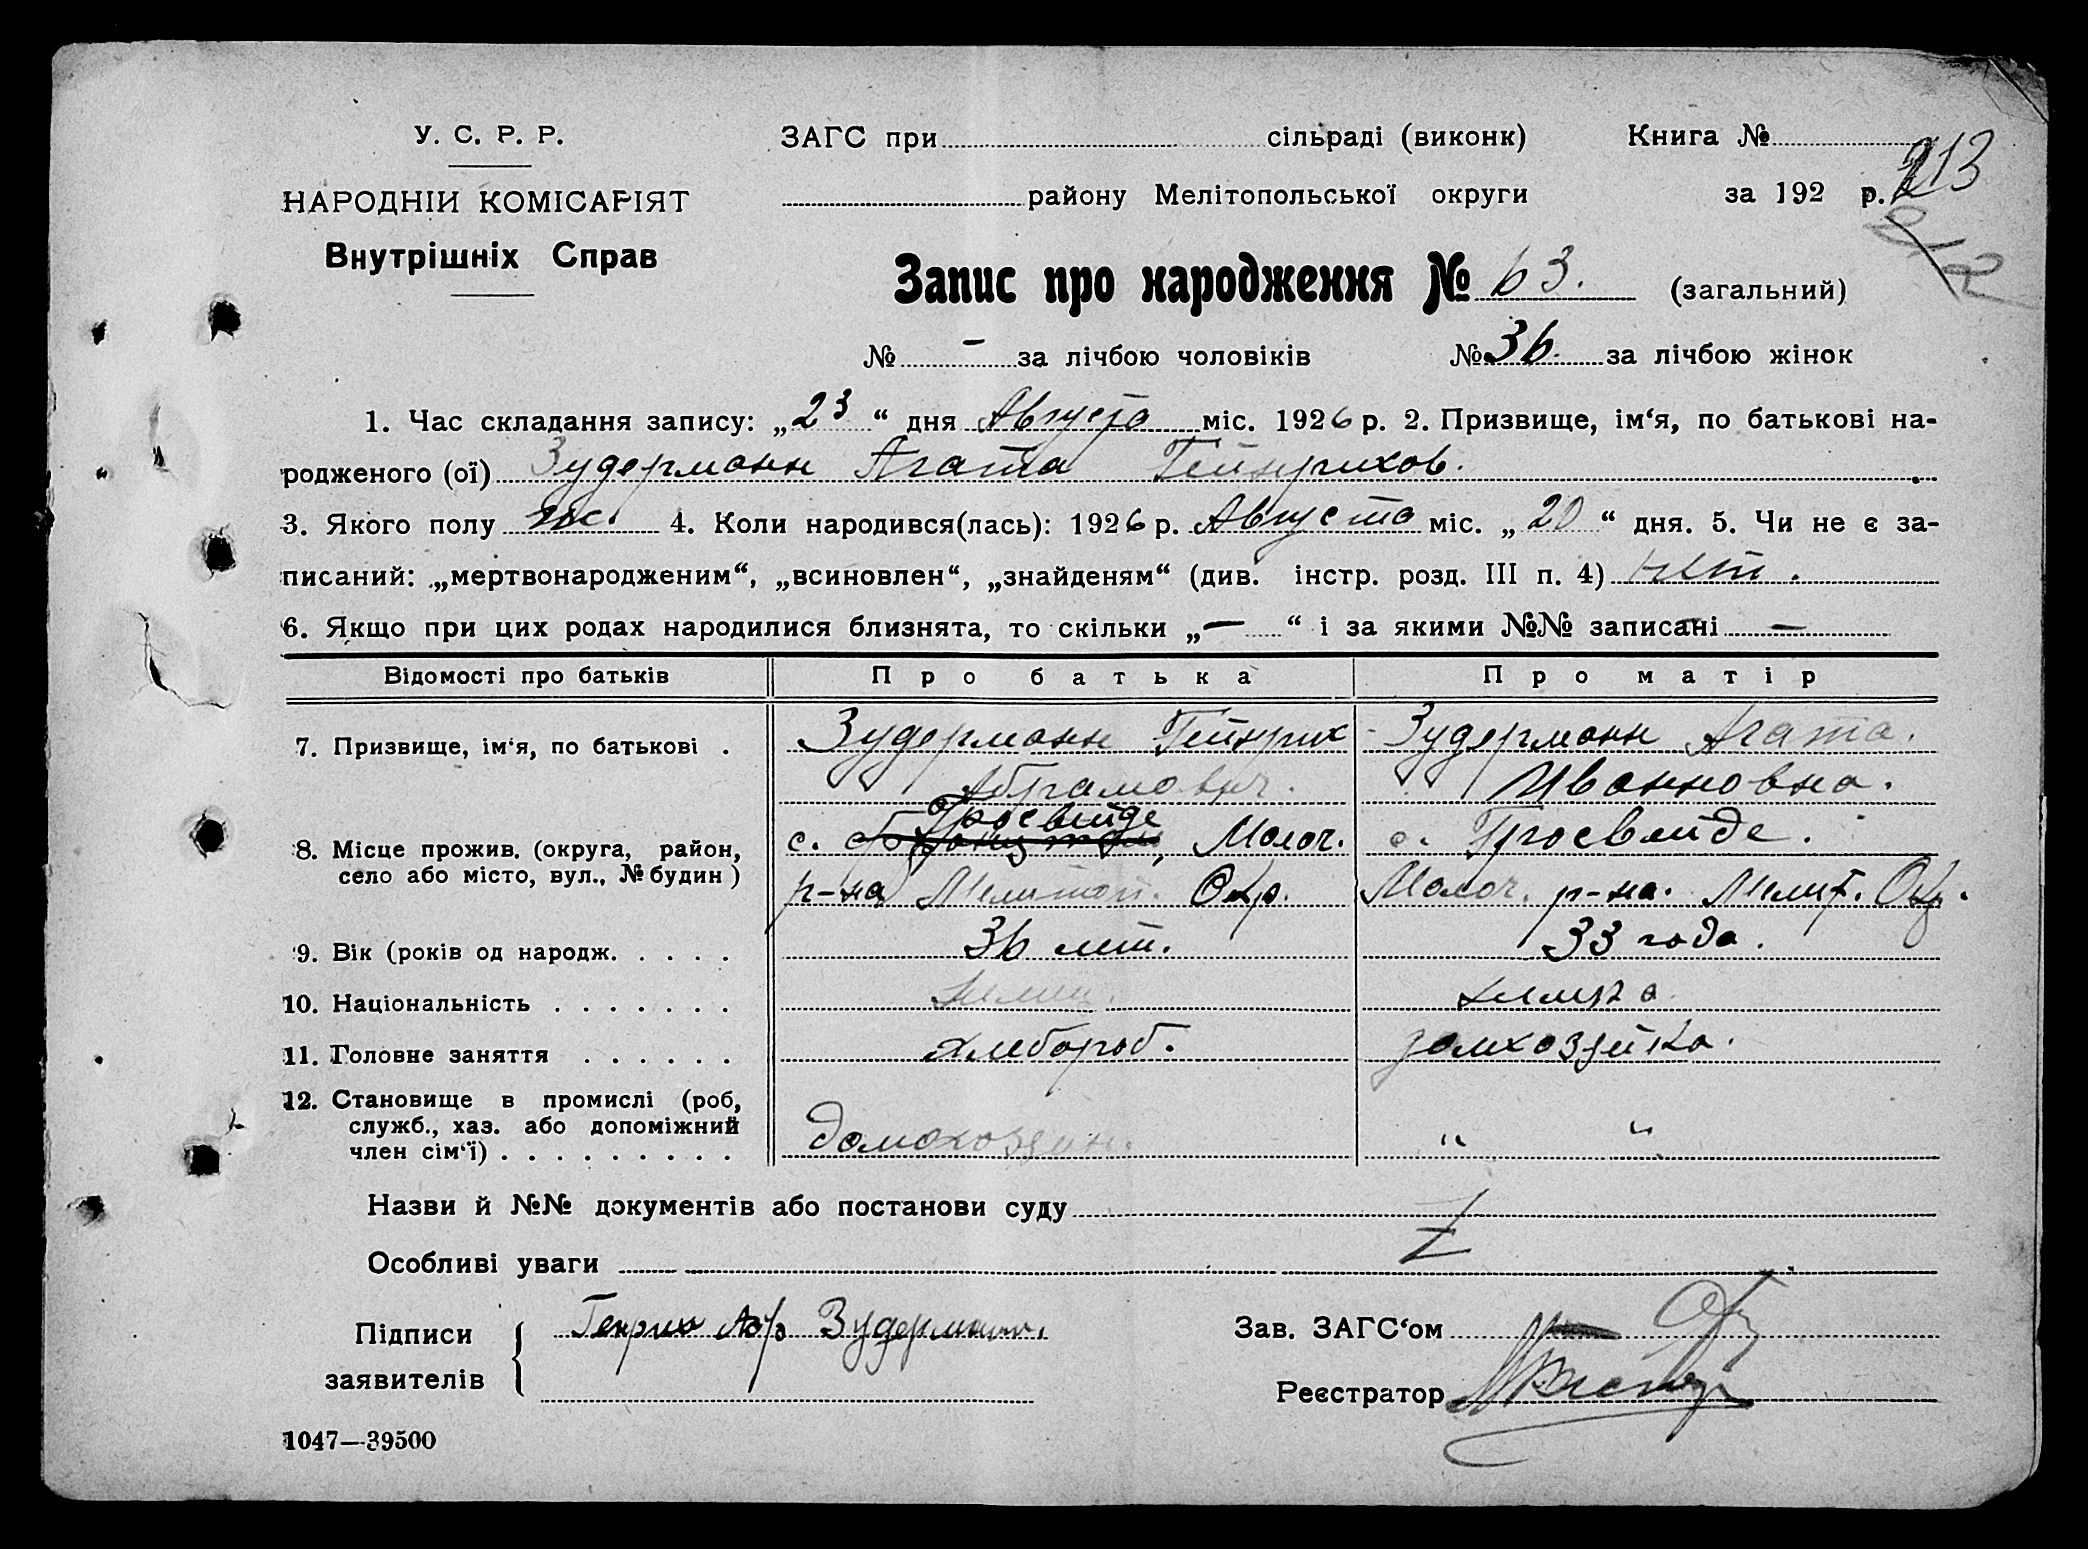 У. С. Р. Р.
НАРОДНІЙ КОМІСАРІЯТ
Внутрішніх Справ
ЗАГС при сільраді (виконк) Книга №
району Мелітопольської округи за 192 р. 213
212
Запис про народження № 63. (загальний)
№ - за лічбою чоловіків № 36. за лічбою жінок
1. Час складання запису: „23“ дня Августа міс. 1926 р. 2. Призвище, ім‘я, по батькові на-
родженого (ої) Зудерманн Агата Гейнрихов.
3. Якого полу жс. 4. Коли народився(лась): 1926 р. Августа міс. „20“ дня. 5. Чи не є за-
писаний: „мертвонародженим“, „всиновлен“, „знайденям“ (див. інстр. розд. III п. 4) нет.
6. Якщо при цих родах народилися близнята, то скільки „—“ і за якими №№ записані —
Відомості про батьків Про батька Про матір
7. Призвище, ім‘я, по батькові . Зудерманн Гейнрих Зудерманн Агата.
Абрамович. Ивановна.
Гросвейде
8. Місце прожив. (округа, район, с. Молоч. с. Гросвейде.
село або місто, вул., № будин) р-на Мелитоп. Окр. Молоч. р-на. Мелит. Окр.
9. Вік (років од народж. . . . . 36 лет. 33 года.
10. Національність . . . . . . . Немец. немка
11. Головне заняття . . . . . . хлебороб. домхозяйка.
12. Становище в промислі (роб,
служб., хаз. або допоміжний домохозяин. “ “
член сім‘ї) . . . . . . . . .
Назви й №№ документів або постанови суду
Z
Особливі уваги
Підписи Генрих Абр Зудерманн. Зав. ЗАГС‘ом
заявителів Реєстратор
1047—39500